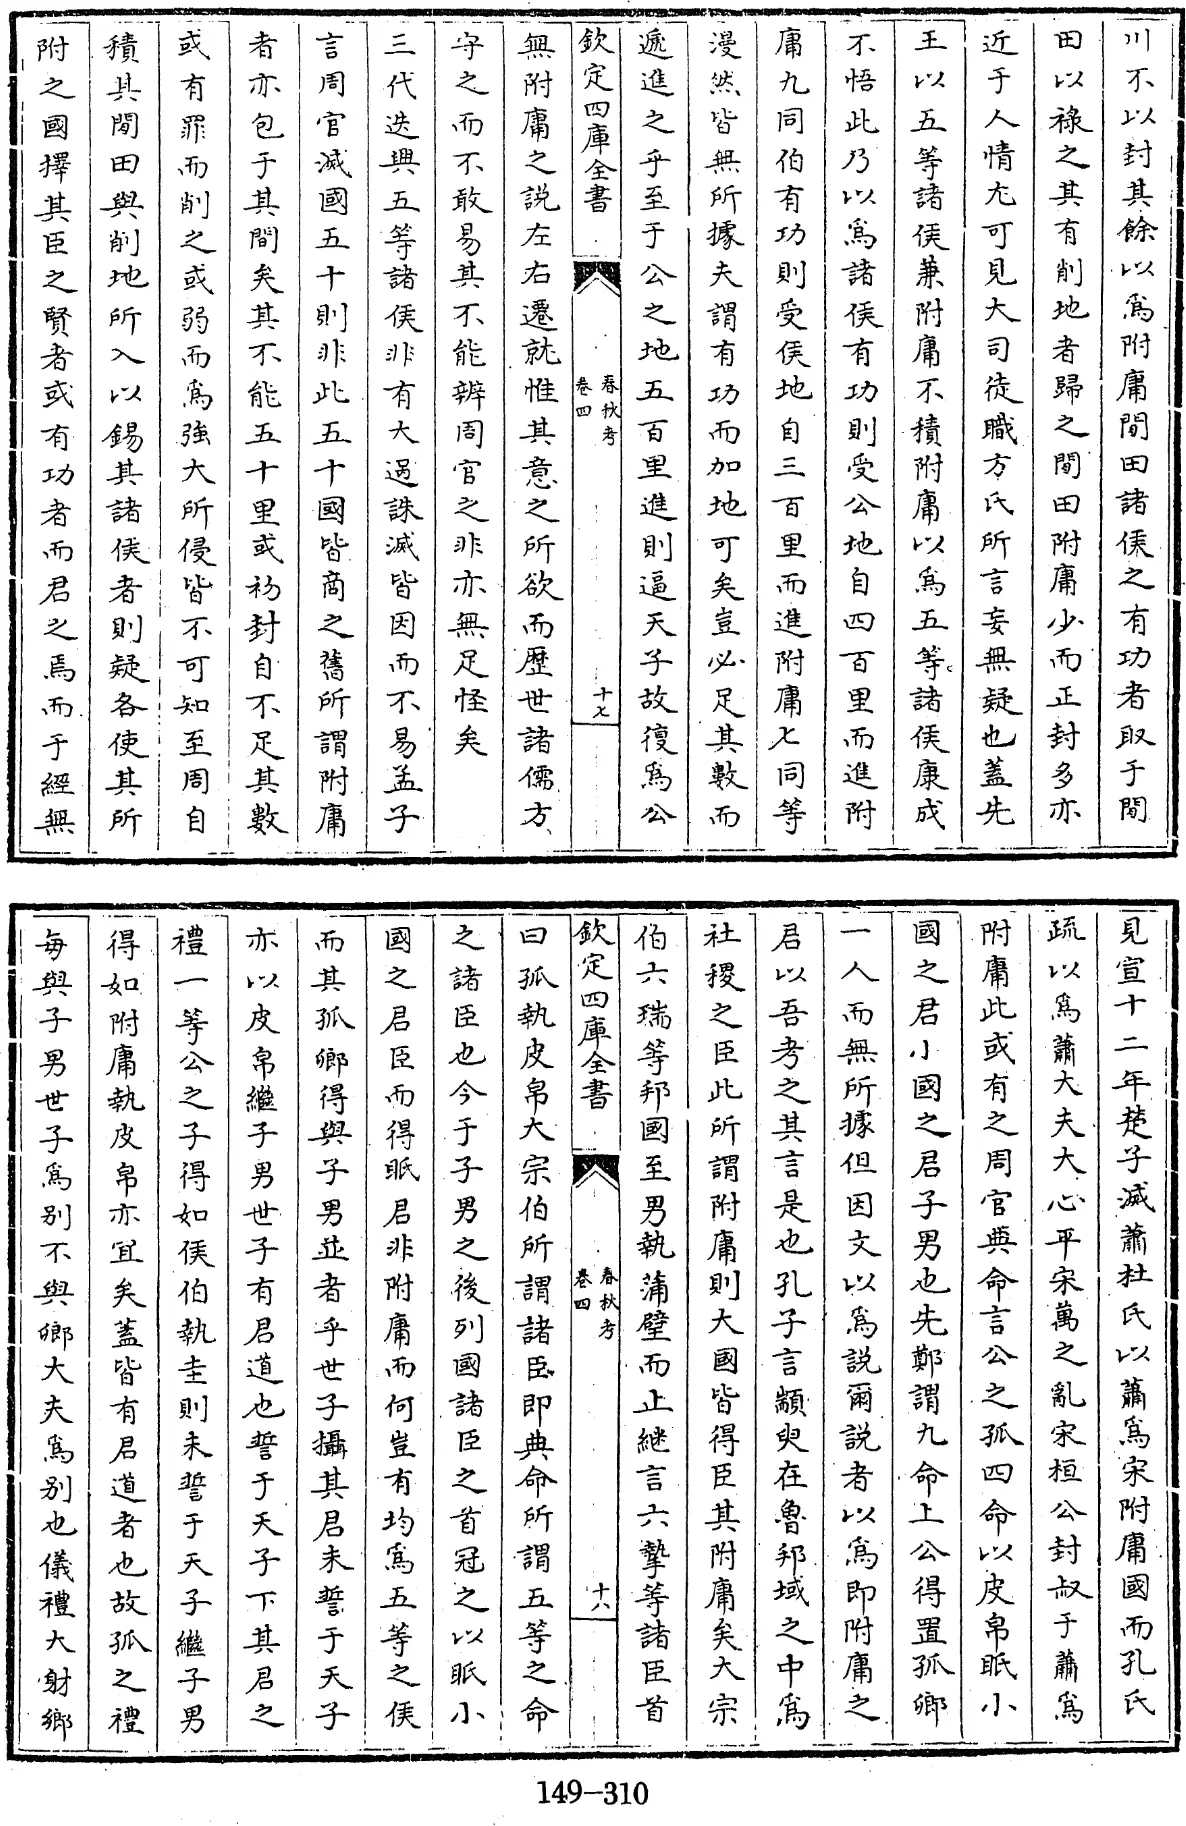 川不以封其餘以爲附庸間田諸侯之有功者取于間
田以祿之其有削地者歸之間田附庸少而正封多亦
近于人情尤可見大司徒職方氏所言妄無疑也蓋先
王以五等諸侯兼附庸不積附庸以爲五等諸侯康成
不悟此乃以爲諸侯有功則受公地自四百里而進附
庸九同伯有功則受侯地自三百里而進附庸七同等
漫然皆無所據夫謂有功而加地可矣豈必足其數而
遞進之乎至于公之地五百里進則逼天子故復爲公
欽定四庫全書
春秋考
卷四
十七
無附庸之説左右遷就惟其意之所欲而歷世諸儒方
守之而不敢易其不能辨周官之非亦無足怪矣
三代迭興五等諸侯非有大過誅滅皆因而不易孟子
言周官滅國五十則非此五十國皆商之舊所謂附庸
者亦包于其間矣其不能五十里或初封自不足其數
或有罪而削之或弱而爲強大所侵皆不可知至周自
積其間田與削地所入以錫其諸侯者則疑各使其所
附之國擇其臣之賢者或有功者而君之焉而于經無
見宣十二年楚子滅蕭杜氏以蕭爲宋附庸國而孔氏
疏以爲蕭大夫大心平宋萬之亂宋桓公封叔于蕭爲
附庸此或有之周官典命言公之孤四命以皮帛眡小
國之君小國之君子男也先鄭謂九命上公得置孤卿
一人而無所據但因文以爲説爾説者以爲即附庸之
君以吾考之其言是也孔子言顓臾在魯邦域之中爲
社稷之臣此所謂附庸則大國皆得臣其附庸矣大宗
伯六瑞等邦國至男執蒲璧而止繼言六摯等諸臣首
欽定四庫全書
春秋考
卷四
十六
曰孤執皮帛大宗伯所謂諸臣即典命所謂五等之命
之諸臣也今于子男之後列國諸臣之首冠之以眡小
國之君臣而得眡君非附庸而何豈有均爲五等之侯
而其孤卿得與子男並者乎世子攝其君未誓于天子
亦以皮帛繼子男世子有君道也誓于天子下其君之
禮一等公之子得如侯伯執圭則未誓于天子繼子男
得如附庸執皮帛亦宜矣蓋皆有君道者也故孤之禮
每與子男世子爲別不與卿大夫爲别也儀禮大射卿
149-310